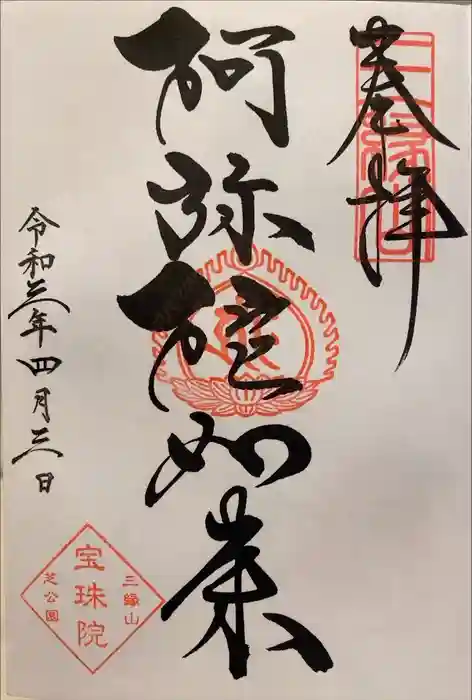 奉拝
三縁山
阿弥陀如来
令和三年四月三日
三縁山
宝珠院
芝公園